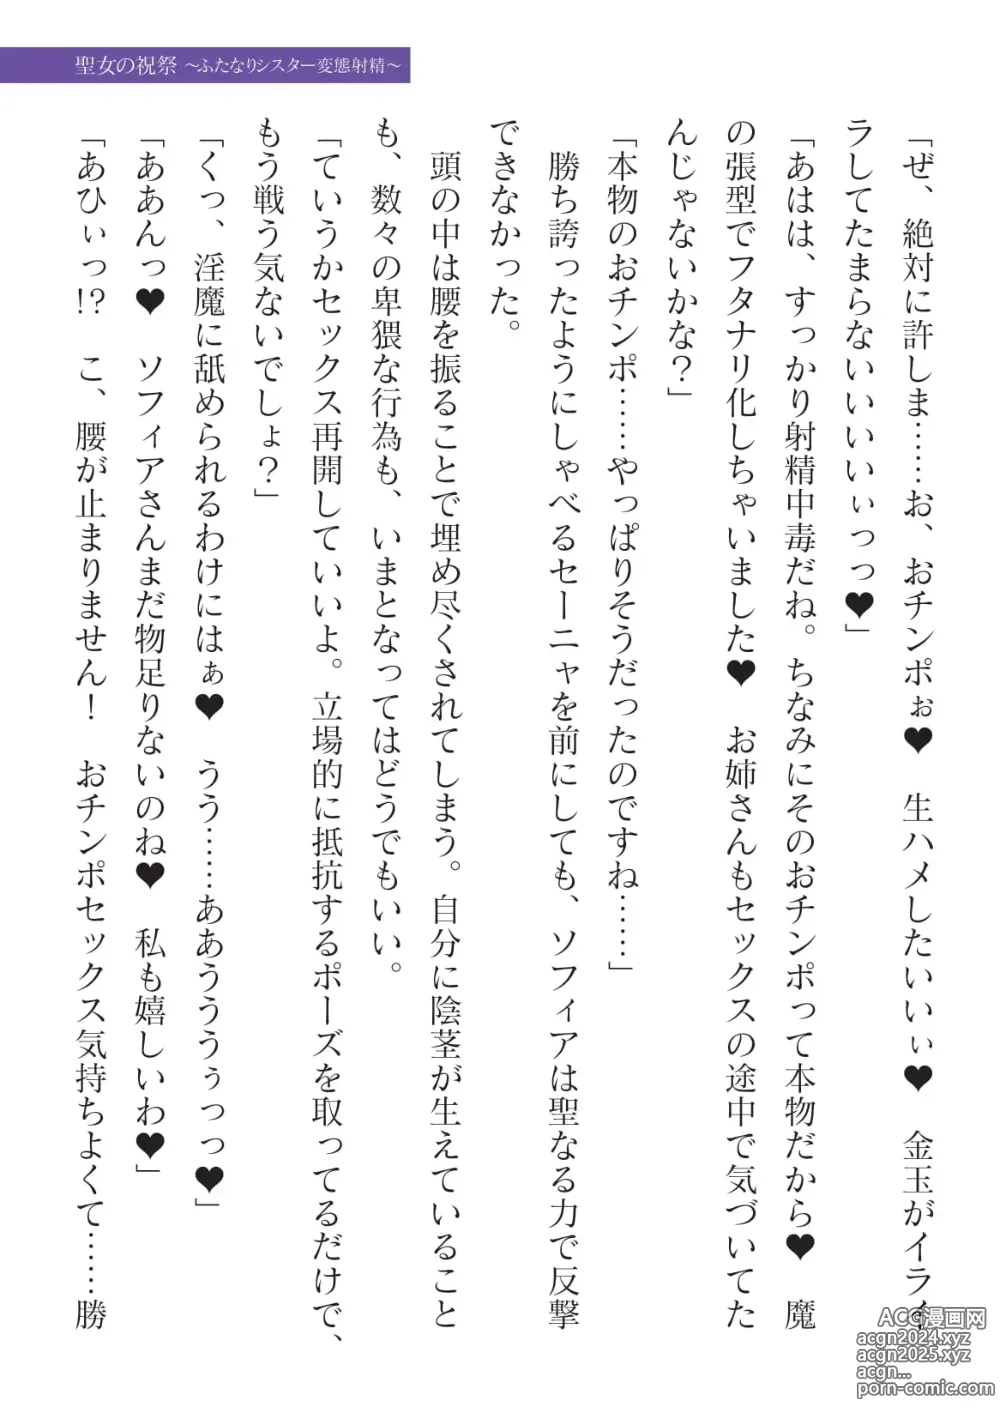 聖女の祝祭 ～ふたなりシスター変態射精～
「ぜ、絶対に許しま……お、おチンポぉ♥　生ハメしたいいぃ♥　金玉がイライ
ラしてたまらないいいいぃっっ♥」
「あはは、すっかり射精中毒だね。ちなみにそのおチンポって本物だから♥　魔
の張型でフタナリ化しちゃいました♥　お姉さんもセックスの途中で気づいてた
んじゃないかな？」
「本物のおチンポ……やっぱりそうだったのですね……」
　勝ち誇ったようにしゃべるセーニャを前にしても、ソフィアは聖なる力で反撃
できなかった。
　頭の中は腰を振ることで埋め尽くされてしまう。自分に陰茎が生えていること
も、数々の卑猥な行為も、いまとなってはどうでもいい。
「ていうかセックス再開していいよ。立場的に抵抗するポーズを取ってるだけで、
もう戦う気ないでしょ？」
「くっ、淫魔に舐められるわけにはぁ♥　うう……ああうううぅっっ♥」
「ああんっ♥　ソフィアさんまだ物足りないのね♥　私も嬉しいわ♥」
「あひぃっ!?　こ、腰が止まりません！　おチンポセックス気持ちよくて……勝
ACG漫画网
acgn2024.xyz
acgn2025.xyz
acgn...
porn-comic.com